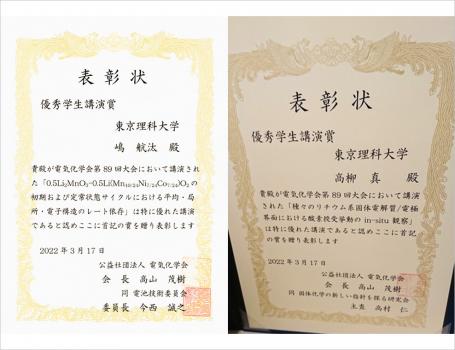 表彰状
優秀学生講演賞
東京理科大学
嶋 航汰 殿
貴殿が電気化学会第89回大会において講演され
た「0.5Li₂MnO₃-0.5Li(Mn₁₀/₂₄Ni₇/₂₄Co₇/₂₄)O₂の
初期および定常状態サイクルにおける平均・局
所・電子構造のレート依存」は特に優れた講演
であると認めここに首記の賞を贈り表彰します
2022年3月17日
公益社団法人 電気化学会
会長 高山 茂樹
同 電池技術委員会
委員長 今西 誠之
表彰状
優秀学生講演賞
東京理科大学
高柳 真 殿
貴殿が電気化学会第89回大会において講演され
た「種々のリチウム系固体電解質/電極
界面における酸素授受挙動のin-situ観察」
は特に優れた講演であると認めここに首記
の賞を贈り表彰します
2022年3月17日
公益社団法人 電気化学会
会長 高山 茂樹
同 固体化学の新しい指針を探る研究会
主査 高村 仁